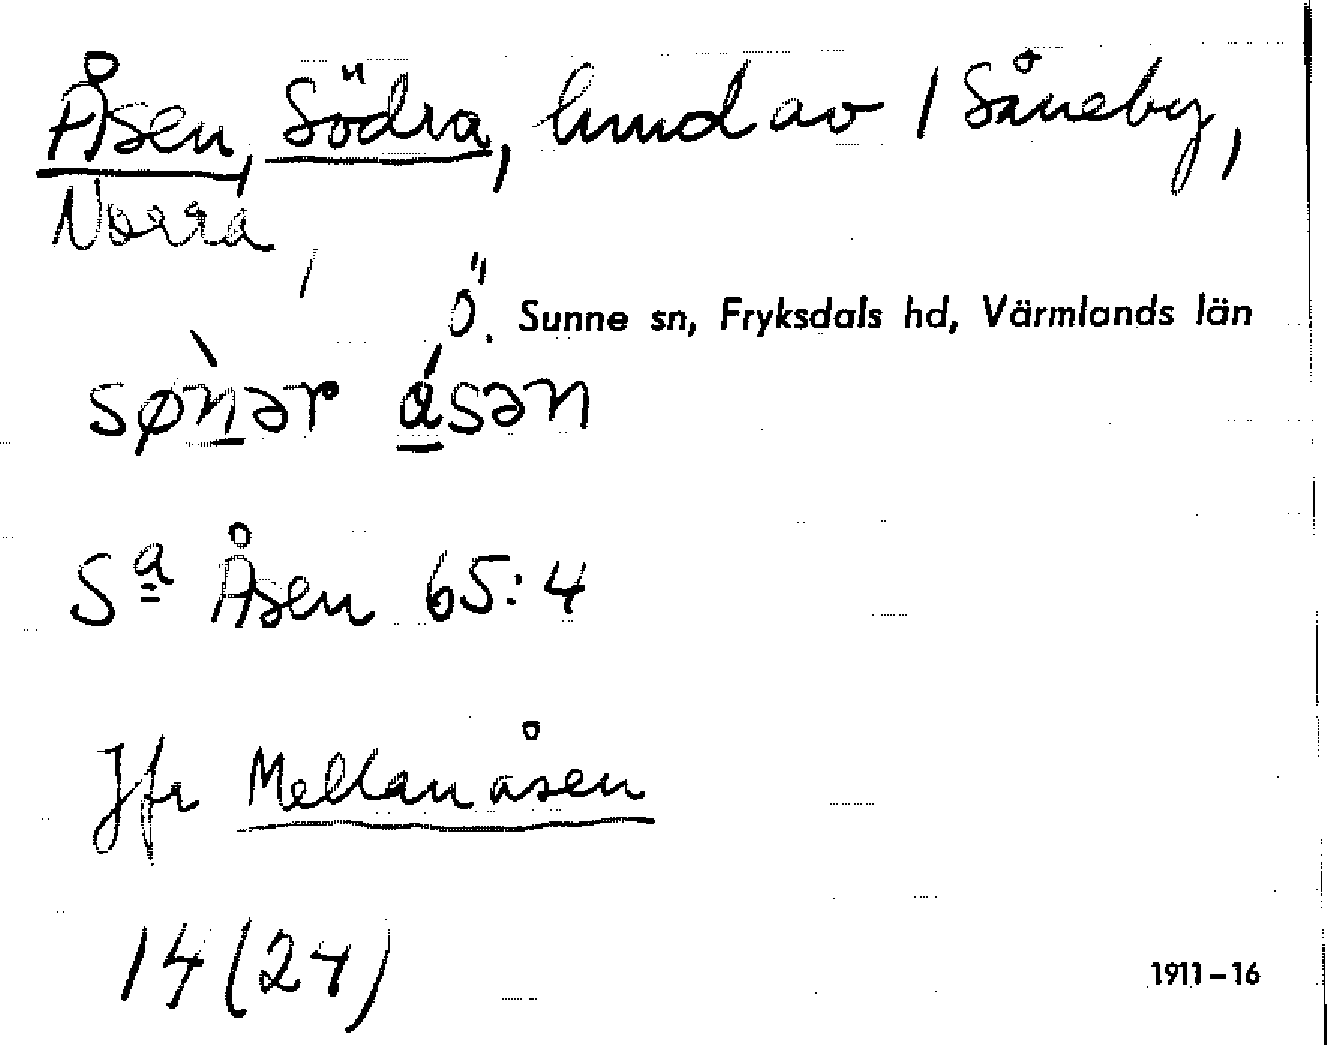 Åsen, Södra, hmd av 1 Såneby,
Norra,
Ö. Sunne sn, Fryksdals hd, Värmlands län
sø̀nər ásən
Sa Åsen 65:4
Jfr Mellanåsen
14 (24)
1911–16